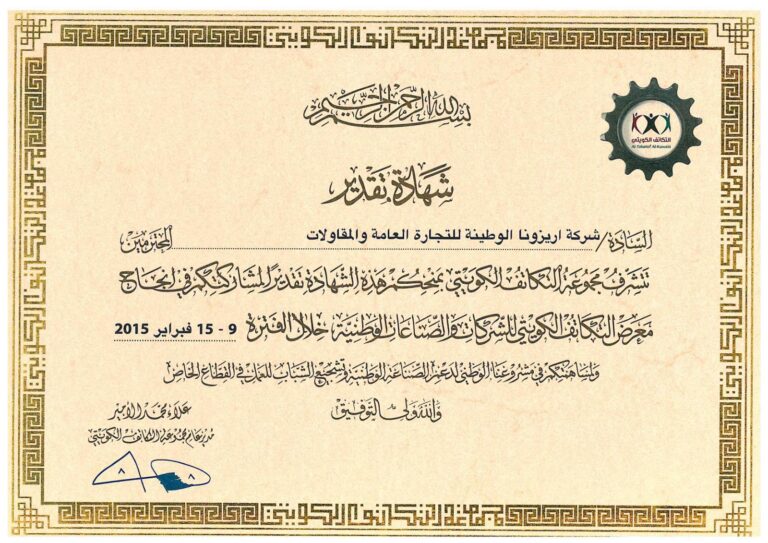 مجموعة التكاتف الكويتي
بسم الله الرحمن الرحيم
التكاتف الكويتي
Al-Takatof Al-Kuwaiti
شهادة تقدير
السادة / شركة اريزونا الوطينة للتجارة العامة والمقاولات المحترمين
تتشرف مجموعة التكاتف الكويتي بمنحكم هذه الشهادة تقديراً لمشاركتكم في انجاح
معرض التكاتف الكويتي للشركات والصناعات الوطنية خلال الفترة 9 - 15 فبراير 2015
ولمساهمتكم في مشروعنا الوطني لدعم الصناعة الوطنية وتشجيع الشباب للعمل في القطاع الخاص
والله ولي التوفيق
علاء محمد الأمير
مدير عام مجموعة التكاتف الكويتي
مجموعة التكاتف الكويتي